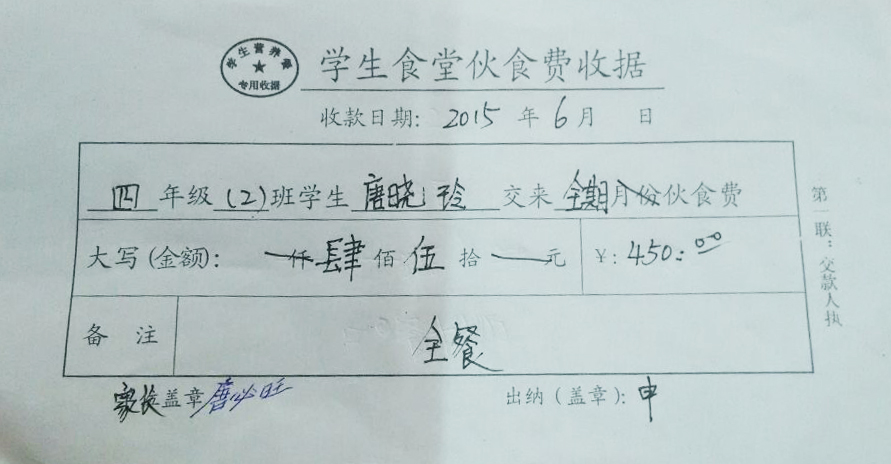 学生营养餐
专用收据
学生食堂伙食费收据
收款日期: 2015 年 6 月 日
四 年级 (2) 班学生 唐晓玲 交来 全期月份伙食费
大写(金额): 一仟肆佰伍拾一元 ¥: 450.00
备 注 全餐
家长盖章 唐必旺 出纳(盖章): 申
第一联:交款人执